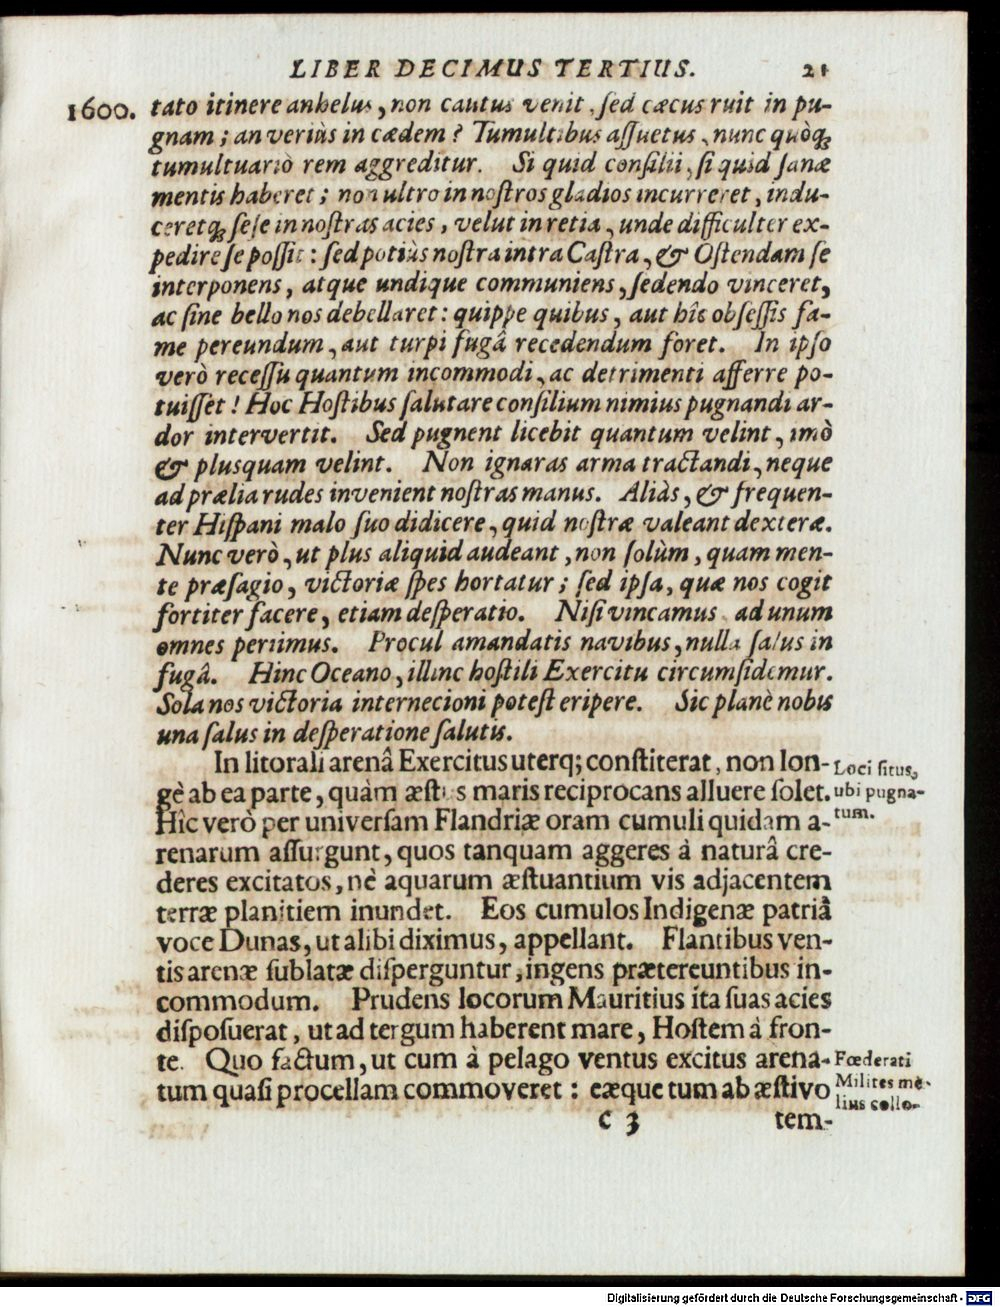 LIBER DECIMUS TERTIUS. 21
1600. tato itinere anhelus, non cautus venit, ſed cæcus ruit in pu-
gnam; an veriùs in cædem? Tumultibus aſſuetus, nunc quòq;
tumultuariò rem aggreditur. Si quid conſilii, ſi quid ſanæ
mentis haberet; non ultro in noſtros gladios incurreret, indu-
ceretq; ſeſe in noſtras acies, velut in retia, unde difficulter ex-
pedire ſe poſſit: ſed potiùs noſtra intra Caſtra, & Oſtendam ſe
interponens, atque undique communiens, ſedendo vinceret,
ac ſine bello nos debellaret: quippe quibus, aut hîc obſeſſis fa-
me pereundum, aut turpi fugâ recedendum foret. In ipſo
verò receſſu quantum incommodi, ac detrimenti afferre po-
tuiſſet! Hoc Hoſtibus ſalutare conſilium nimius pugnandi ar-
dor intervertit. Sed pugnent licebit quantum velint, imò
& plusquam velint. Non ignaras arma tractandi, neque
ad prælia rudes invenient noſtras manus. Aliàs, & frequen-
ter Hiſpani malo ſuo didicere, quid noſtræ valeant dexteræ.
Nunc verò, ut plus aliquid audeant, non ſolùm, quam men-
te præſagio, victoriæ ſpes hortatur; ſed ipſa, quæ nos cogit
fortiter facere, etiam deſperatio. Niſi vincamus ad unum
omnes perimus. Procul amandatis navibus, nulla ſalus in
fugâ. Hinc Oceano, illinc hoſtili Exercitu circumſidemur.
Sola nos victoria internecioni poteſt eripere. Sic planè nobis
una ſalus in deſperatione ſalutis.
In litorali arenâ Exercitus uterq; conſtiterat, non lon-
gè ab ea parte, quàm æſtus maris reciprocans alluere ſolet.
Loci ſitus,
ubi pugna-
tum.
Hîc verò per univerſam Flandriæ oram cumuli quidam a-
renarum aſſurgunt, quos tanquam aggeres à naturâ cre-
deres excitatos, nè aquarum æſtuantium vis adjacentem
terræ planitiem inundet. Eos cumulos Indigenæ patriâ
voce Dunas, ut alibi diximus, appellant. Flantibus ven-
tis arenæ ſublatæ diſperguntur, ingens prætereuntibus in-
commodum. Prudens locorum Mauritius ita ſuas acies
diſpoſuerat, ut ad tergum haberent mare, Hoſtem à fron-
te. Quo factum, ut cum à pelago ventus excitus arena-
tum quaſi procellam commoveret: eæque tum ab æſtivo
Fœderati
Milites me-
lius collo-
c 3 tem-
Digitalisierung gefördert durch die Deutsche Forschungsgemeinschaft - DFG